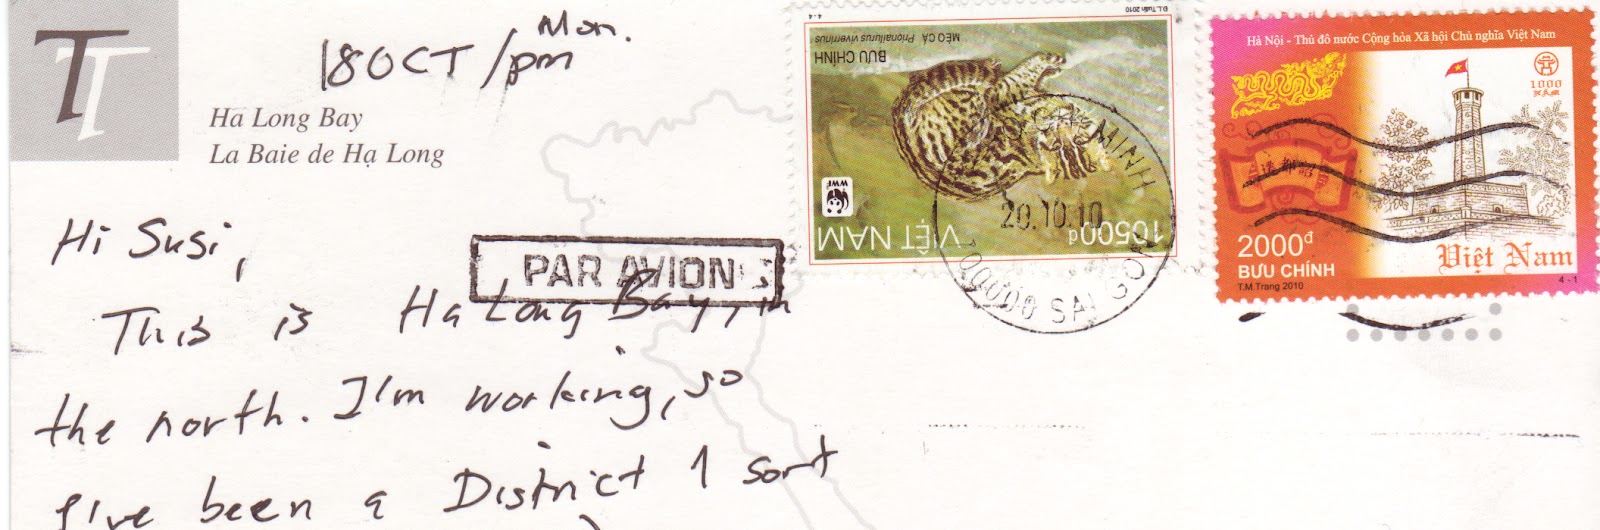 TT
Mon.
18 OCT / pm
Ha Long Bay
La Baie de Hạ Long
Hi Susi,
PAR AVION
This is Ha Long Bay, in
the north. I'm working, so
I've been a District 1 sort
4 - 4
Đ.L.Tuấn 2010
MÈO CÁ Prionailurus viverrinus
BƯU CHÍNH
WWF
10500đ
VIỆT NAM
MINH
20.10.10
SAI GON
Hà Nội - Thủ đô nước Cộng hòa Xã hội Chủ nghĩa Việt Nam
1000
NĂM
2000đ
BƯU CHÍNH
Việt Nam
T.M.Trang 2010
4 - 1